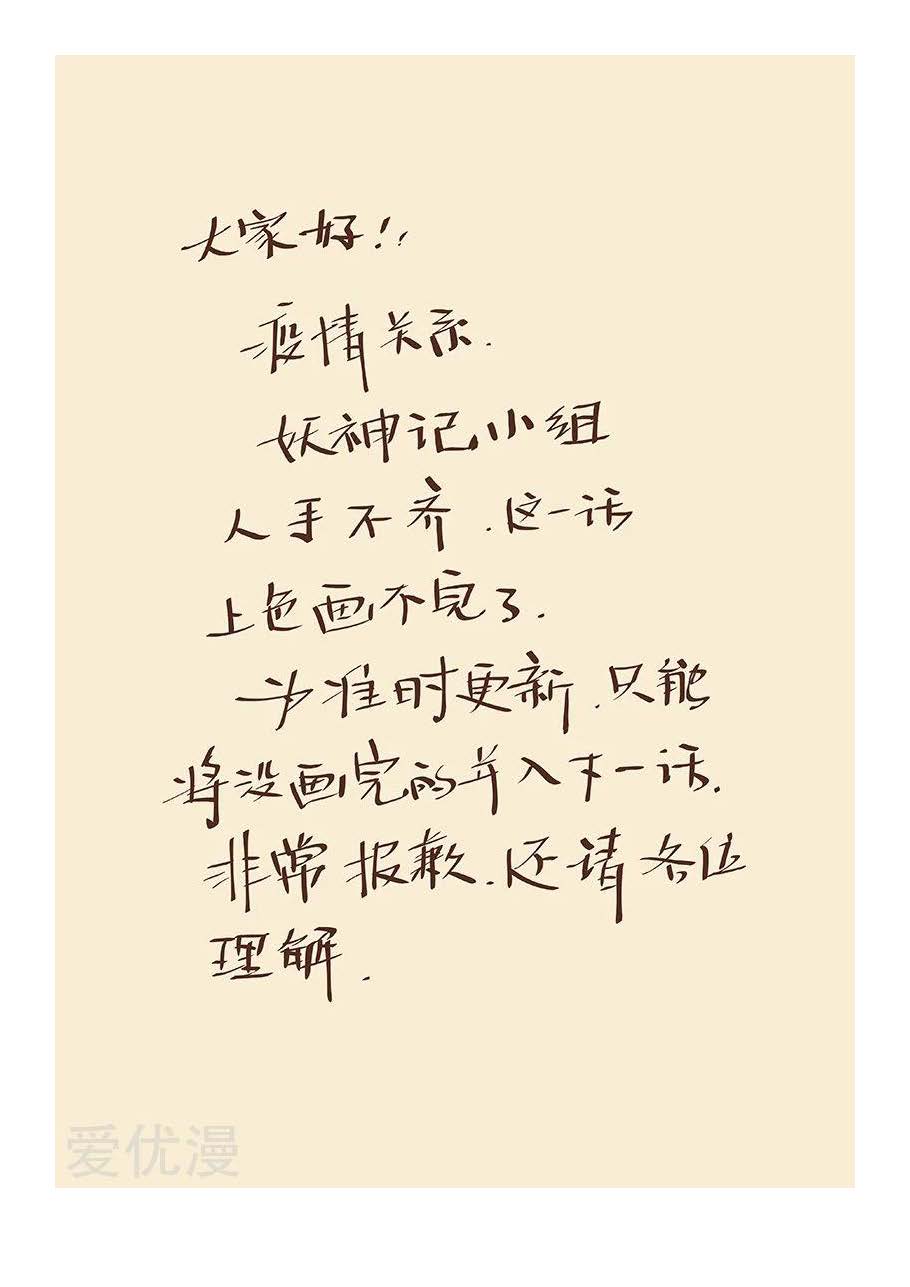 大家好!!
疫情关系.
妖神记小组
人手不齐.这一话
上色画不完了.
为准时更新.只能
将没画完的并入下一话.
非常抱歉.还请各位
理解.
爱优漫